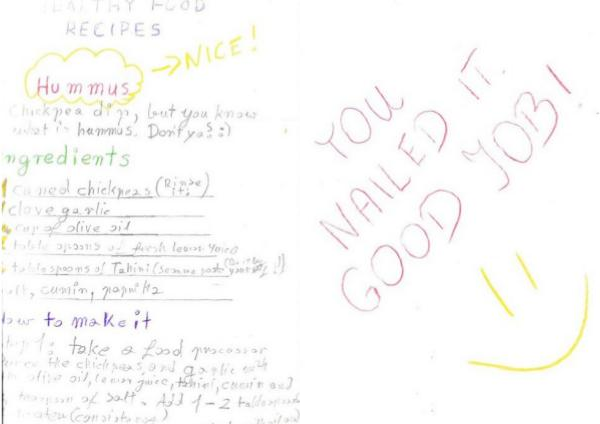 HEALTHY FOOD
RECIPES
Hummus
→NICE!
Chickpea dip, but you know
what is hummus. Don't ya? :)
ngredients
caned chickpeas (Rinse it!)
clove garlic
cup of olive oil
table spoons of fresh lemon
tablespoons of Tahini (
lt, cumin, paprika
ow to make it
take a food processor
the chickpeas and garlic with
olive oil, lemon juice, tahini, cumin and
teaspoon of salt. Add 1-2 tablespoons
water (
YOU
NAILED IT.
GOOD JOB!